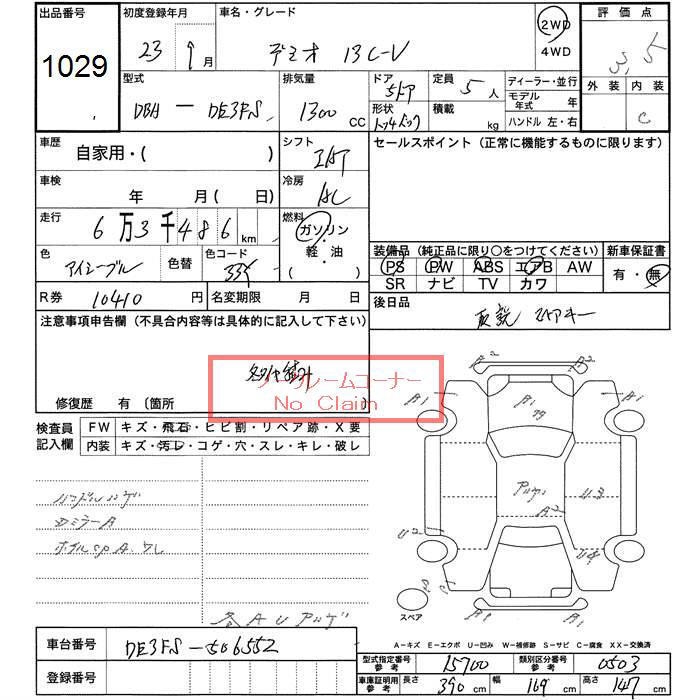 出品番号
1029
初度登録年月
23 9 月
車名・グレード
デミオ 13C-V
2WD
4WD
評価点
3.5
外装 内装
C
型式
DBA - DE3FS
排気量
1300 CC
ドア
5ドア
形状
定員 5 人
積載 kg
ディーラー・並行
モデル年式 年
ハンドル 左・右
車歴
自家用・( )
シフト
セールスポイント (正常に機能するものに限ります)
車検
年 月 ( 日)
冷房
AC
走行
6 万 3 千 4 8 6 km
燃料
ガソリン
・
軽・油
( )
色
アイシーブル
色替
色コード
33Y
装備品 (純正品に限り○をつけてください)
新車保証書
PS PW ABS エアB AW
SR ナビ TV カワ
有・無
R券 10410 円
名変期限 月 日
後日品
取説
注意事項申告欄 (不具合内容等は具体的に記入して下さい)
ノークレームコーナー
No Claim
修復歴 有 〔箇所
検査員記入欄
FW キズ・飛石・ヒビ割・リペア跡・X要
内装 キズ・汚レ・コゲ・穴・スレ・キレ・破レ
ハンドルハゲ
ミラーA
ホイルcpA.ワレ
各AUアリ
A1 A2 A2 A1
U3
A2
U2
U4
スペア
車台番号 DE3FS-506552
登録番号
A-キズ E-エクボ U-凹み W-補修跡 S-サビ C-腐食 XX-交換済
型式指定番号 参考 15700
類別区分番号 参考 0503
車庫証明用 参考
長さ 390 cm
幅 169 cm
高さ 147 cm